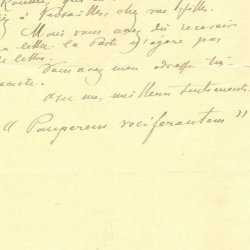 à Versailles chez ses filles.
Mais vous avez dû recevoir
lettre. la Poste n'égare pas
lettres.
Vous avez mon adresse très
exacte.
avec mes meilleurs sentiments.
« Pauperem vociferantem »